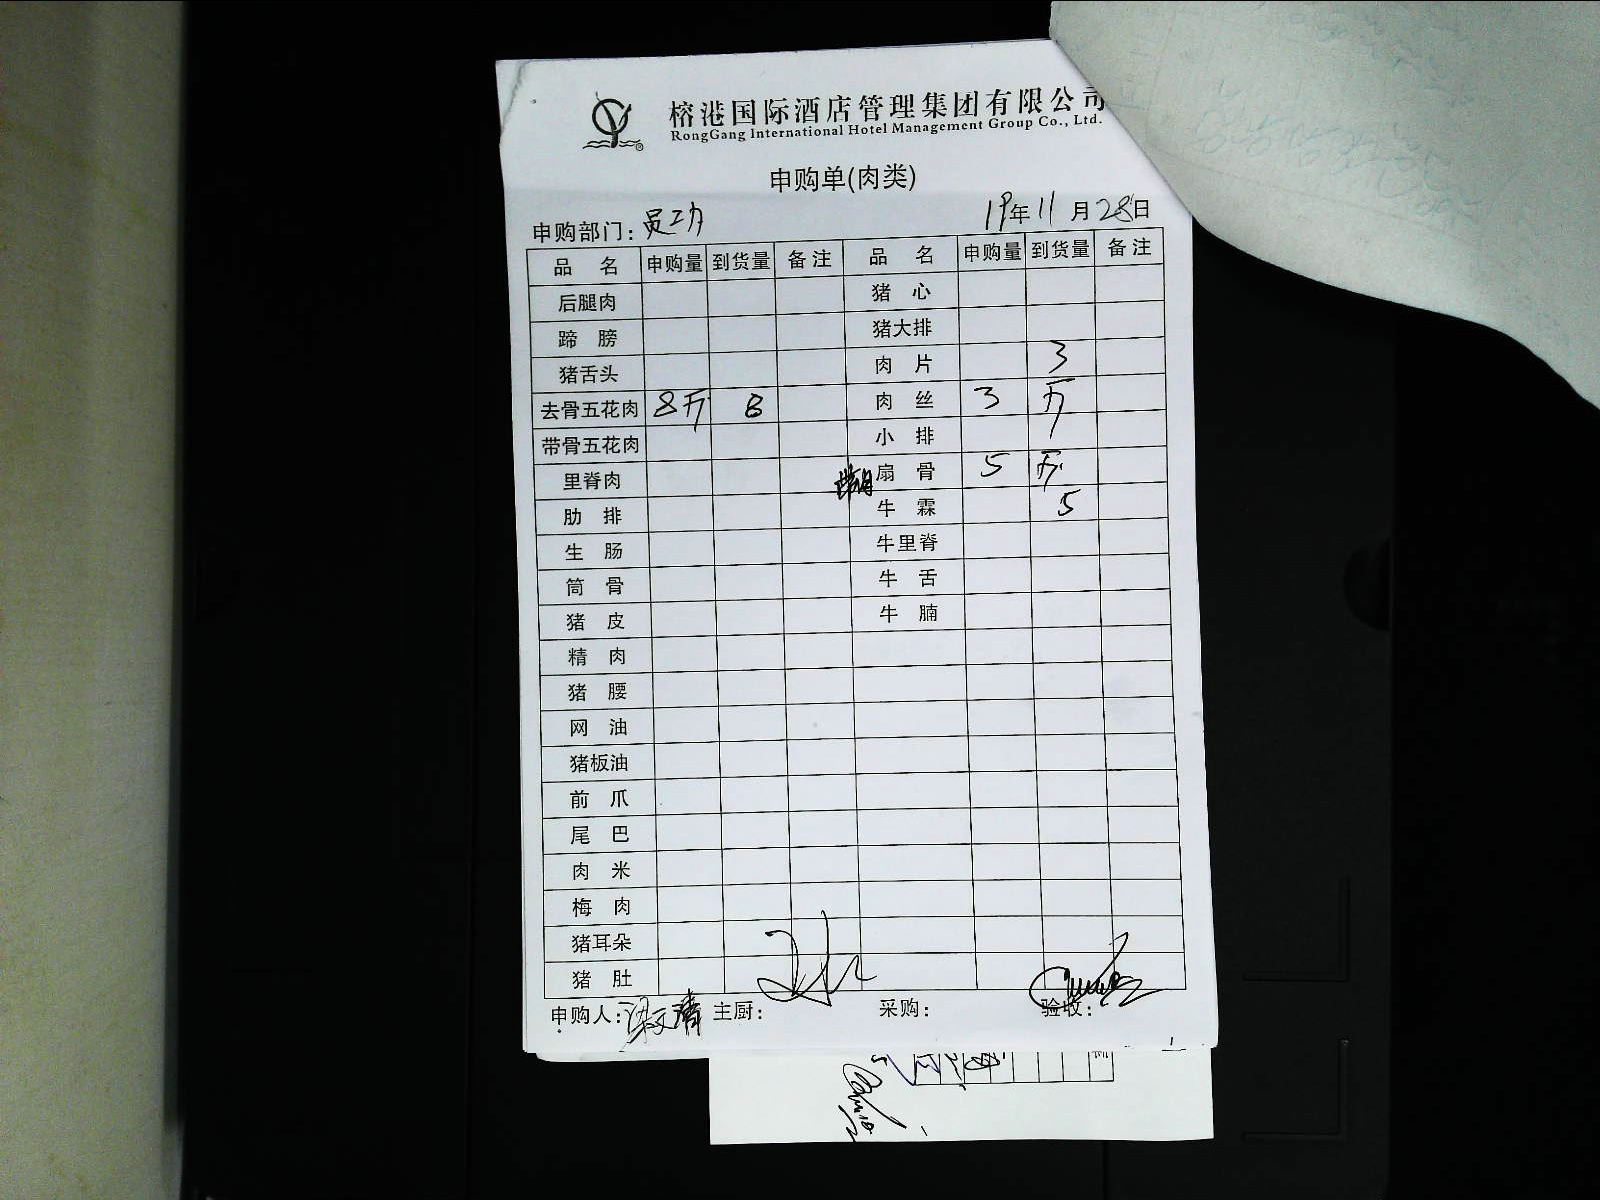 榕港国际酒店管理集团有限公司
RongGang International Hotel Management Group Co., Ltd.
申购单(肉类)
申购部门: 员工 19年11月28日
品名 申购量 到货量 备注 品名 申购量 到货量 备注
后腿肉 猪心
蹄膀 猪大排
猪舌头 肉片 3
去骨五花肉 8斤 8 肉丝 3 斤
带骨五花肉 小排
里脊肉 扇骨 5 斤
肋排 牛霖 5
生肠 牛里脊
筒骨 牛舌
猪皮 牛腩
精肉
猪腰
网油
猪板油
前爪
尾巴
肉米
梅肉
猪耳朵
猪肚
申购人: 主厨: 采购: 验收: